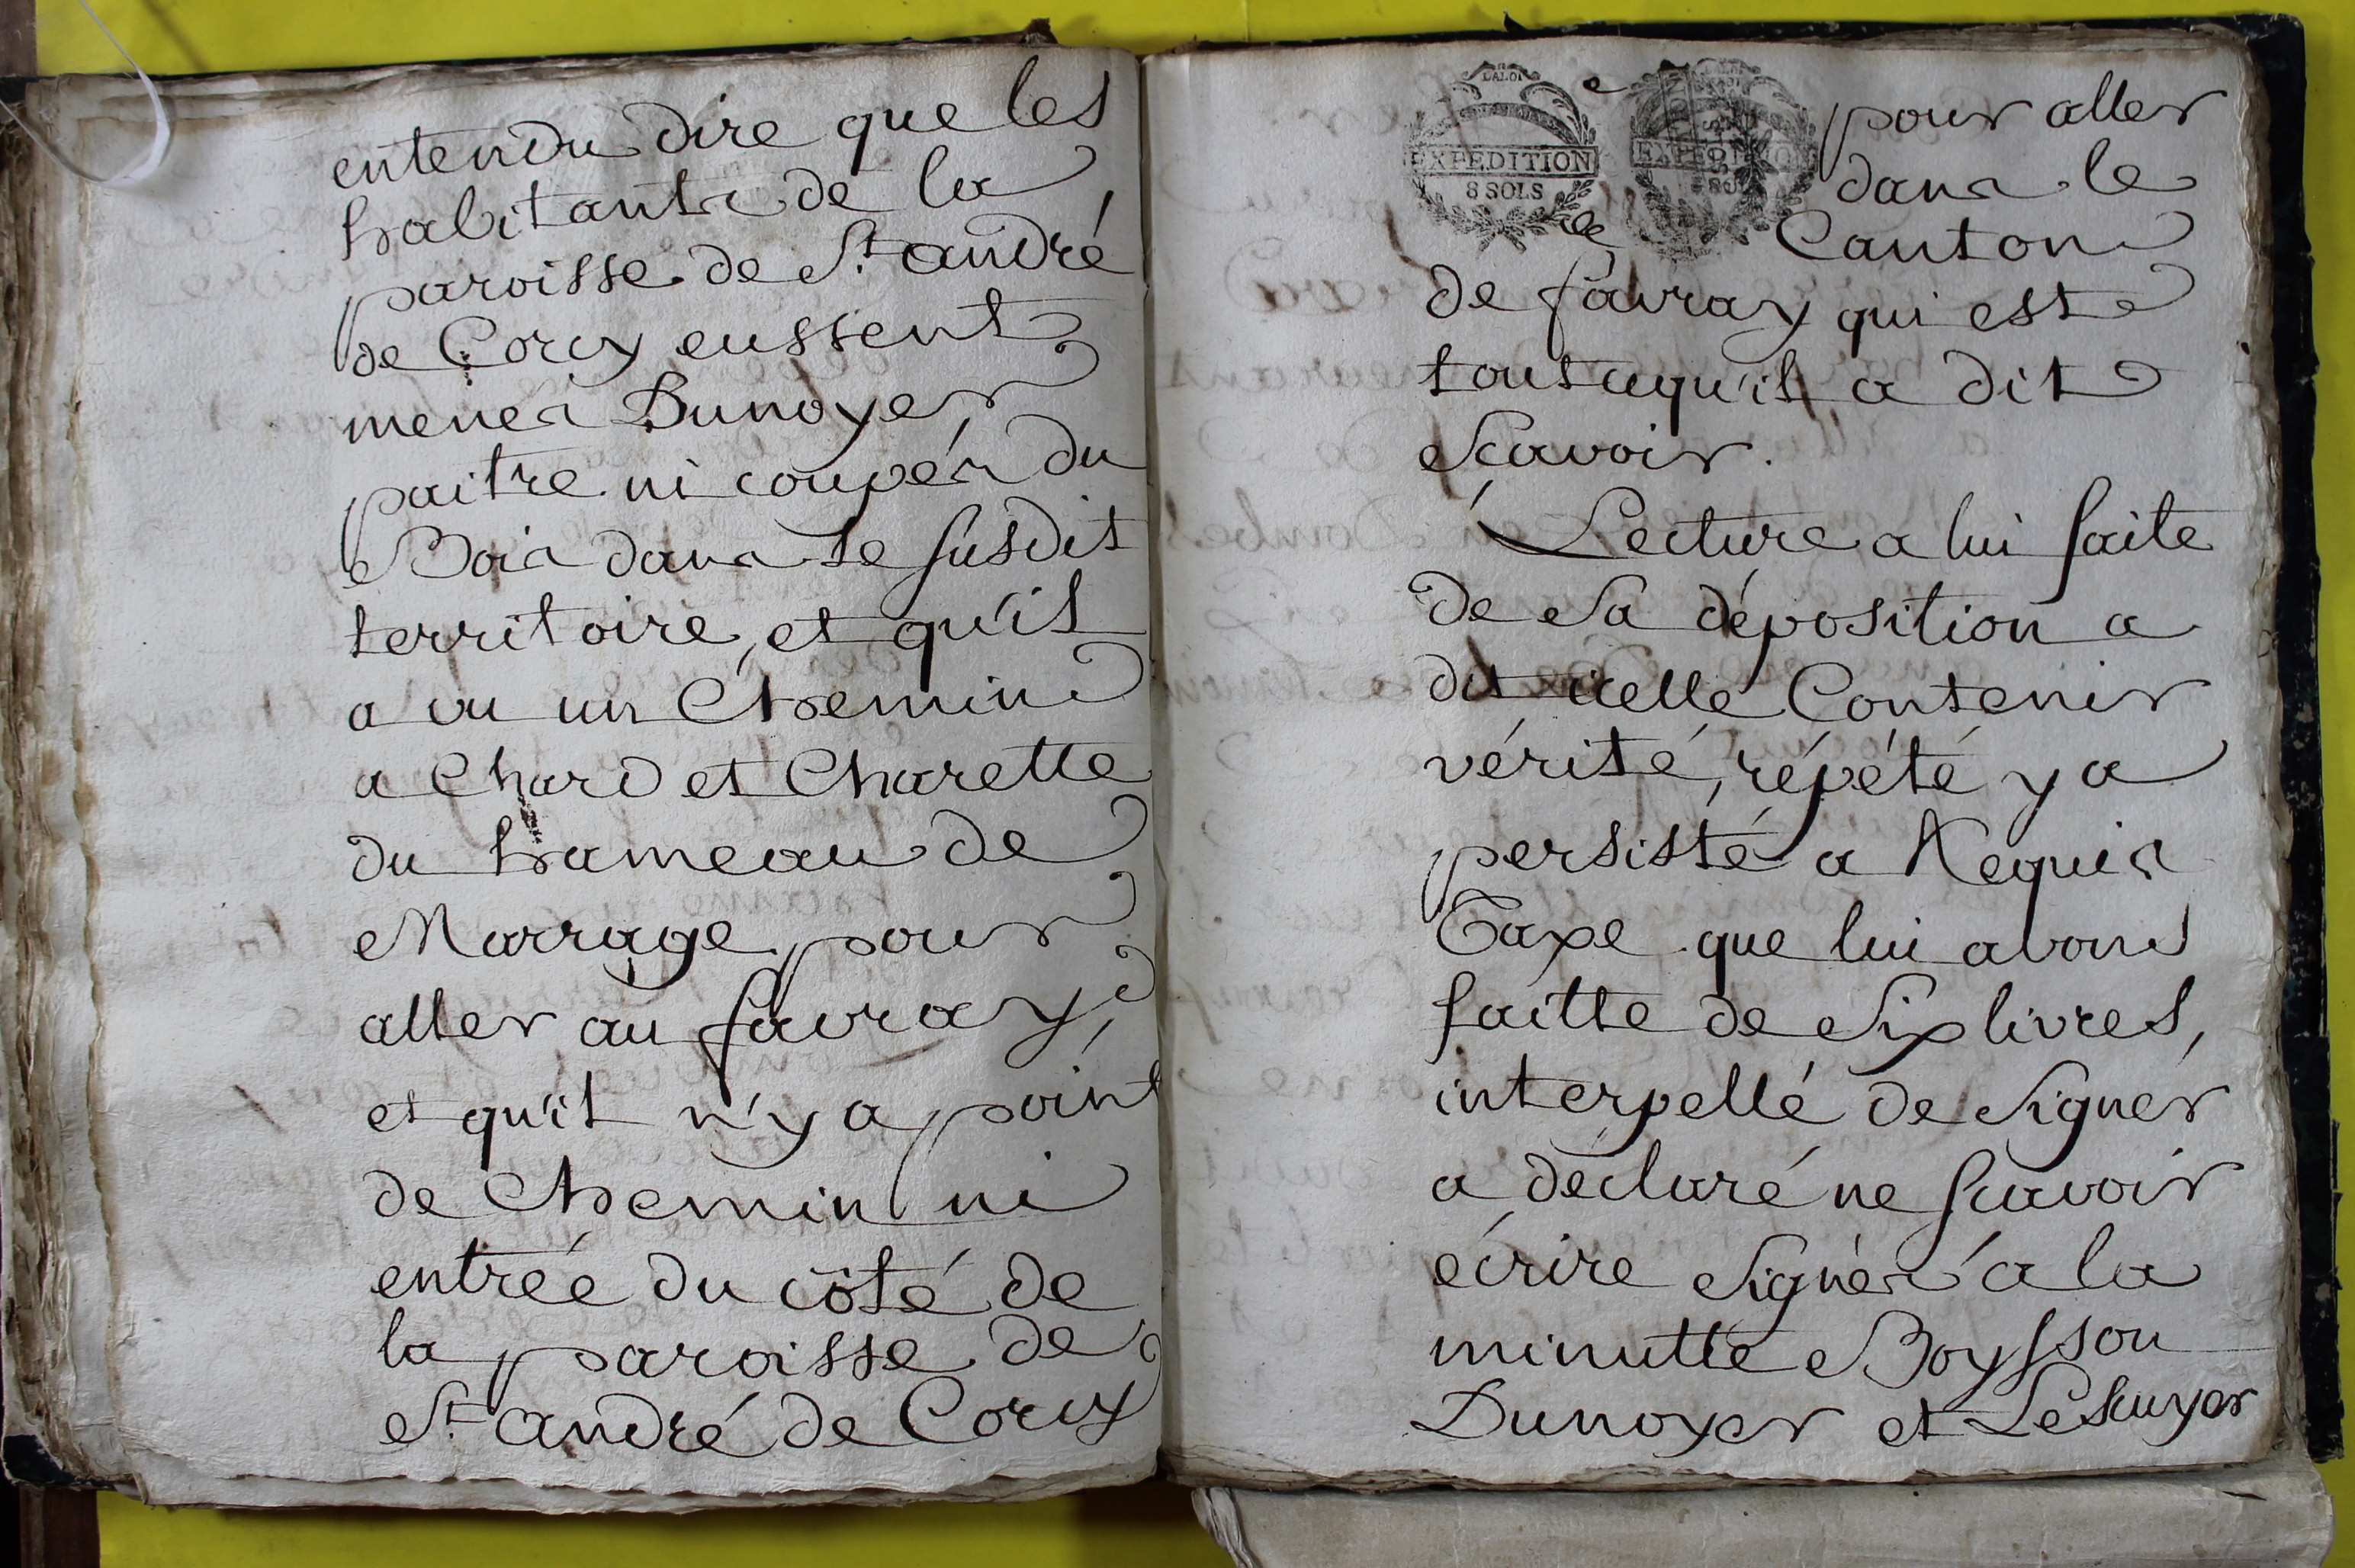 entendu dire que les
habitants de la
paroisse de St. andré
de Corcy eussent
mener Dunoyer
paitre ni couper du
Bois dans le susdit
territoire, et qu'il
a vu un Chemin
a Chard et Charette
du hameau de
Marrage pour
aller au favray,
et qu'il n'y a point
de Chemin ni
entrée du côté de
la paroisse de
St. andré de Corcy
EXPEDITION
8 SOLS
pour aller
dans le
Canton
de favray qui est
tout ce qu'il a dit
Scavoir.
Lecture a lui faite
de Sa déposition a
dit icelle Contenir
vérité, répété y a
persisté a Requis
Taxe que lui avons
faitte de Six livres,
interpellé de Signer
a déclaré ne scavoir
écrire Signer a la
minutte Boysson
Dunoyer et Lescuyer